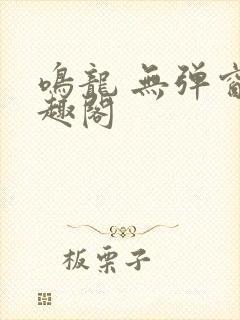 鳴龍 無彈窗
趣閣
板栗子